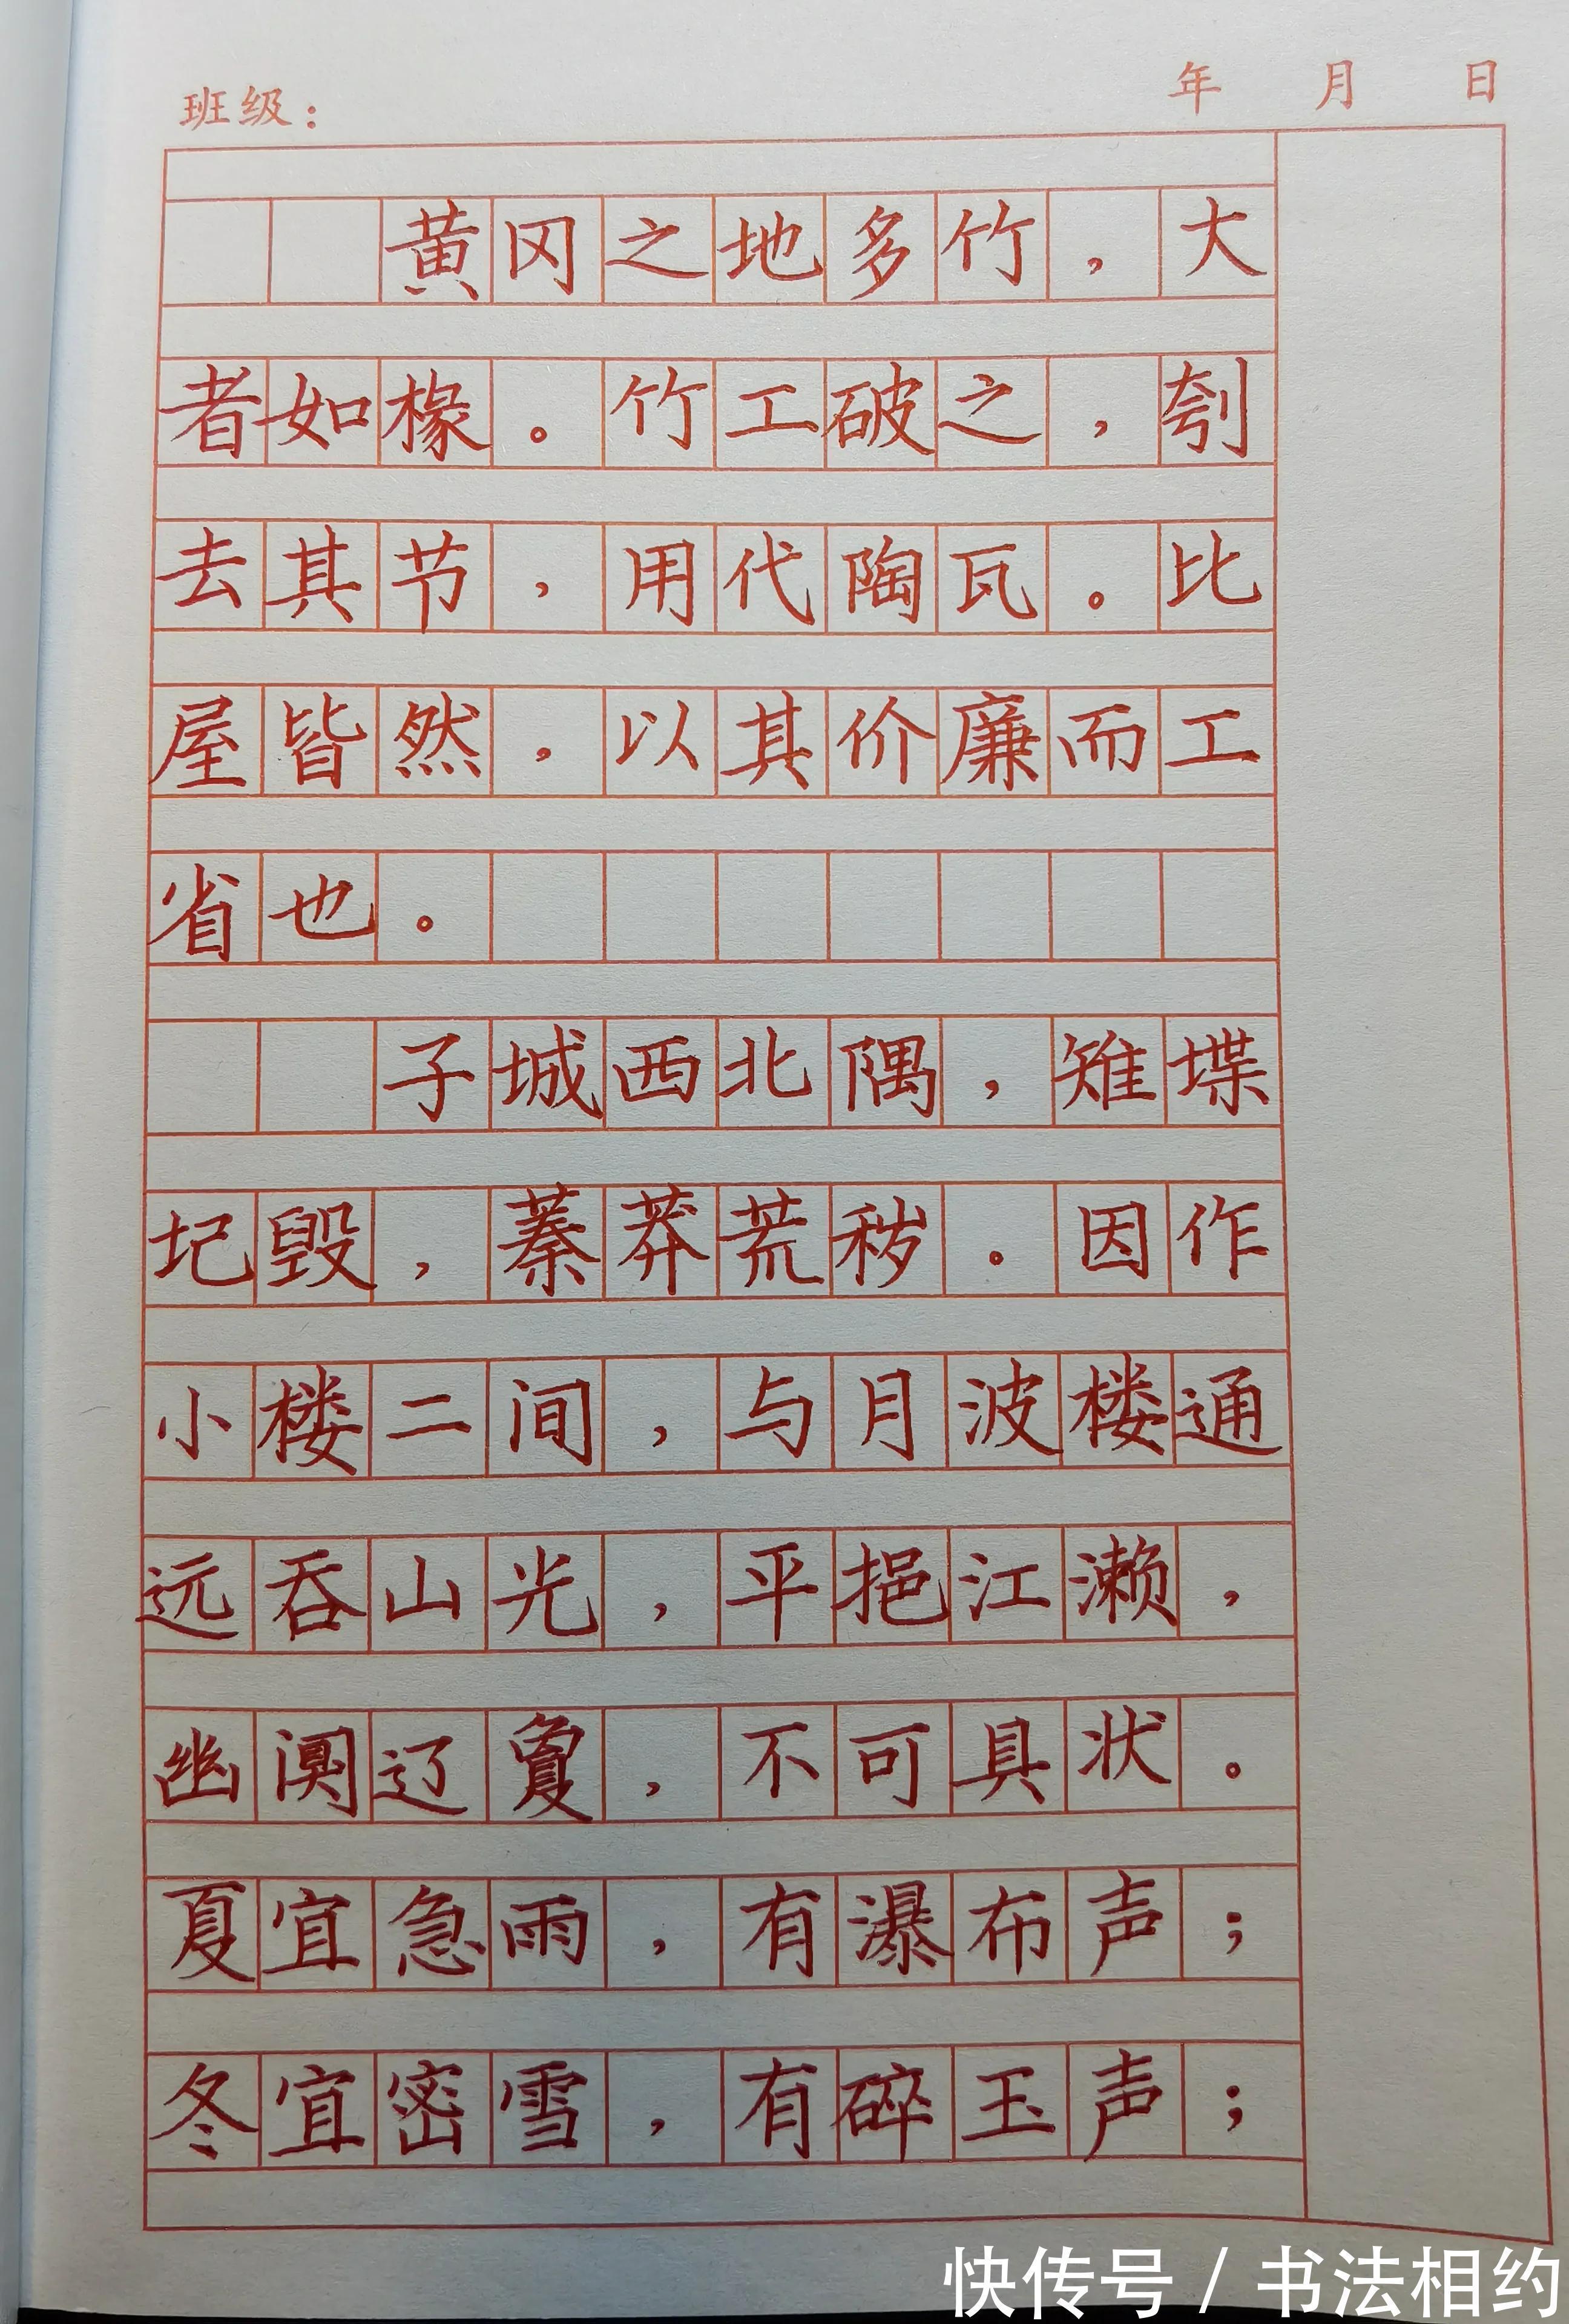 班级：
年 月 日
黄冈之地多竹，大
者如椽。竹工破之，刳
去其节，用代陶瓦。比
屋皆然，以其价廉而工
省也。
子城西北隅，雉堞
圮毁，蓁莽荒秽。因作
小楼二间，与月波楼通
远吞山光，平挹江濑，
幽阒辽夐，不可具状。
夏宜急雨，有瀑布声；
冬宜密雪，有碎玉声；
快传号/书法相约